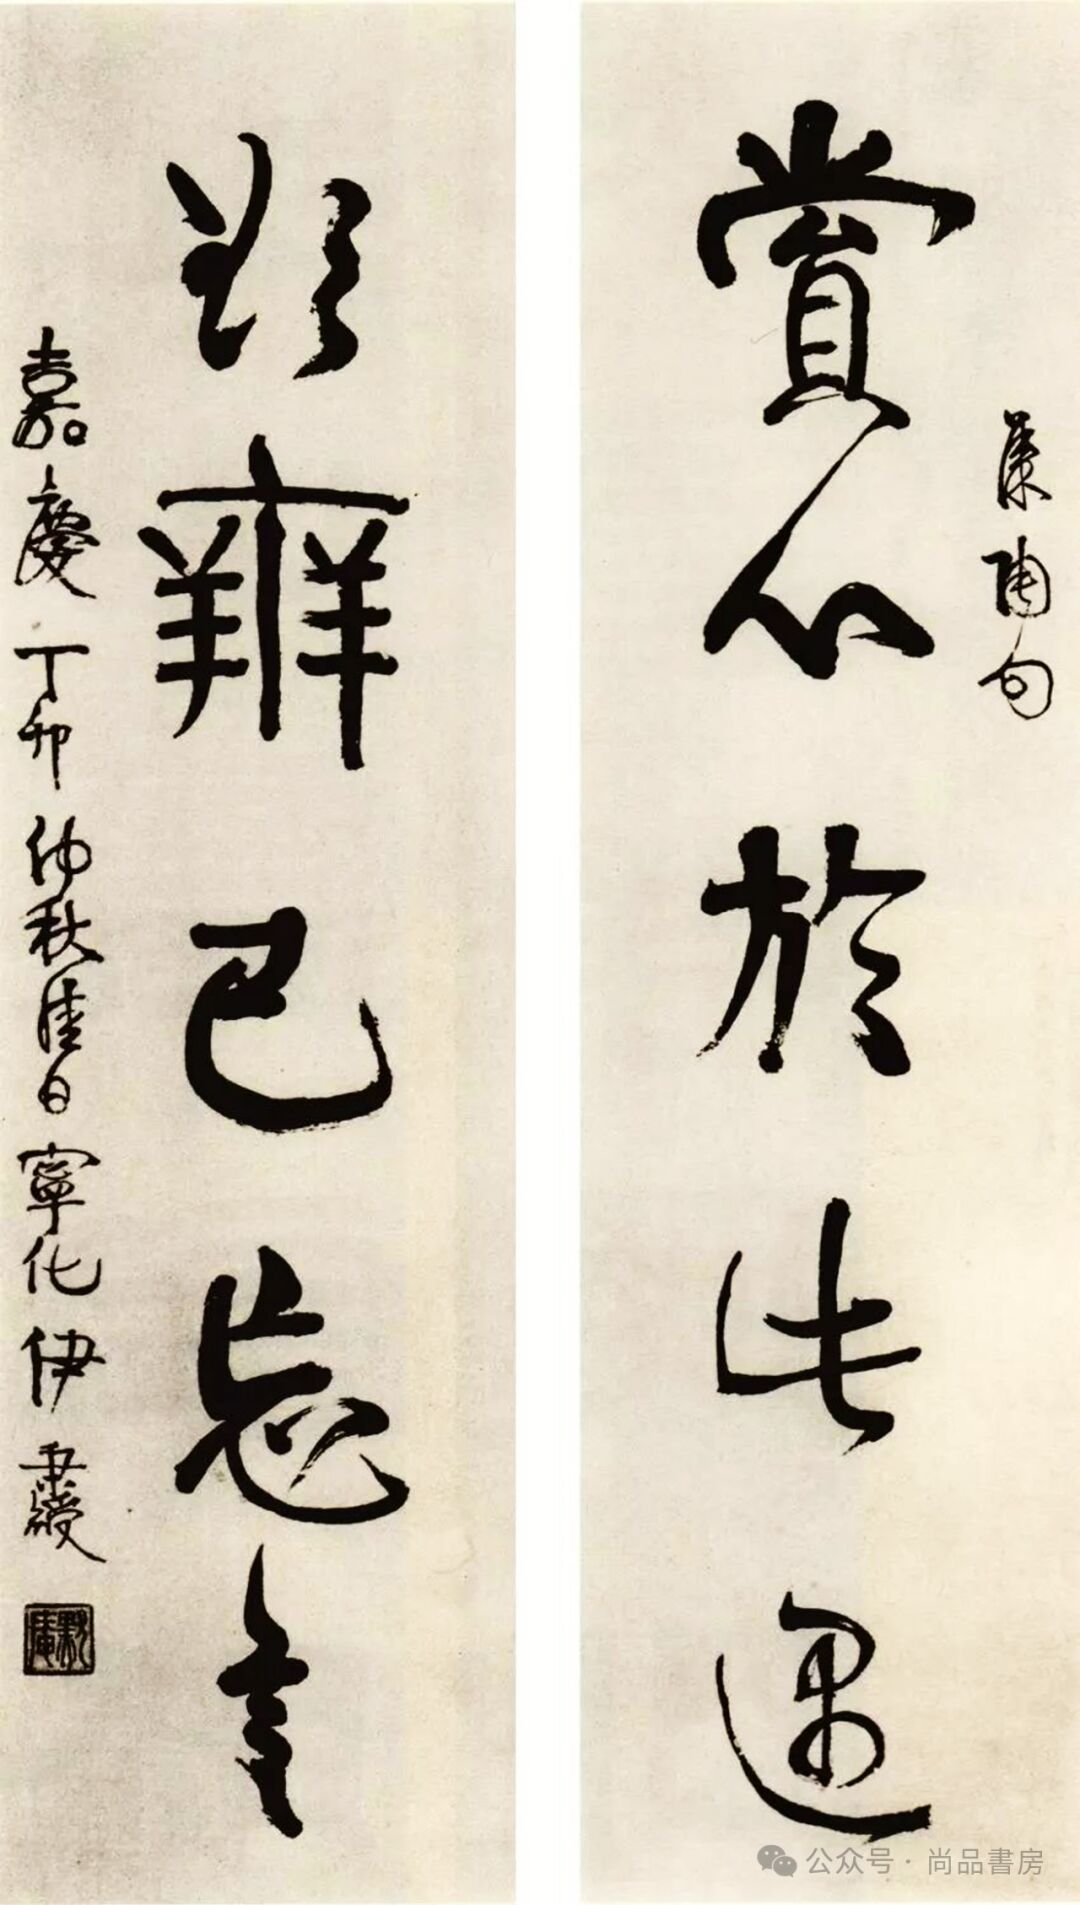 集陶句
賞心於此遇
欲辯已忘言
嘉慶丁卯仲秋佳日寧化伊秉綬
默庵
公众号·尚品書房